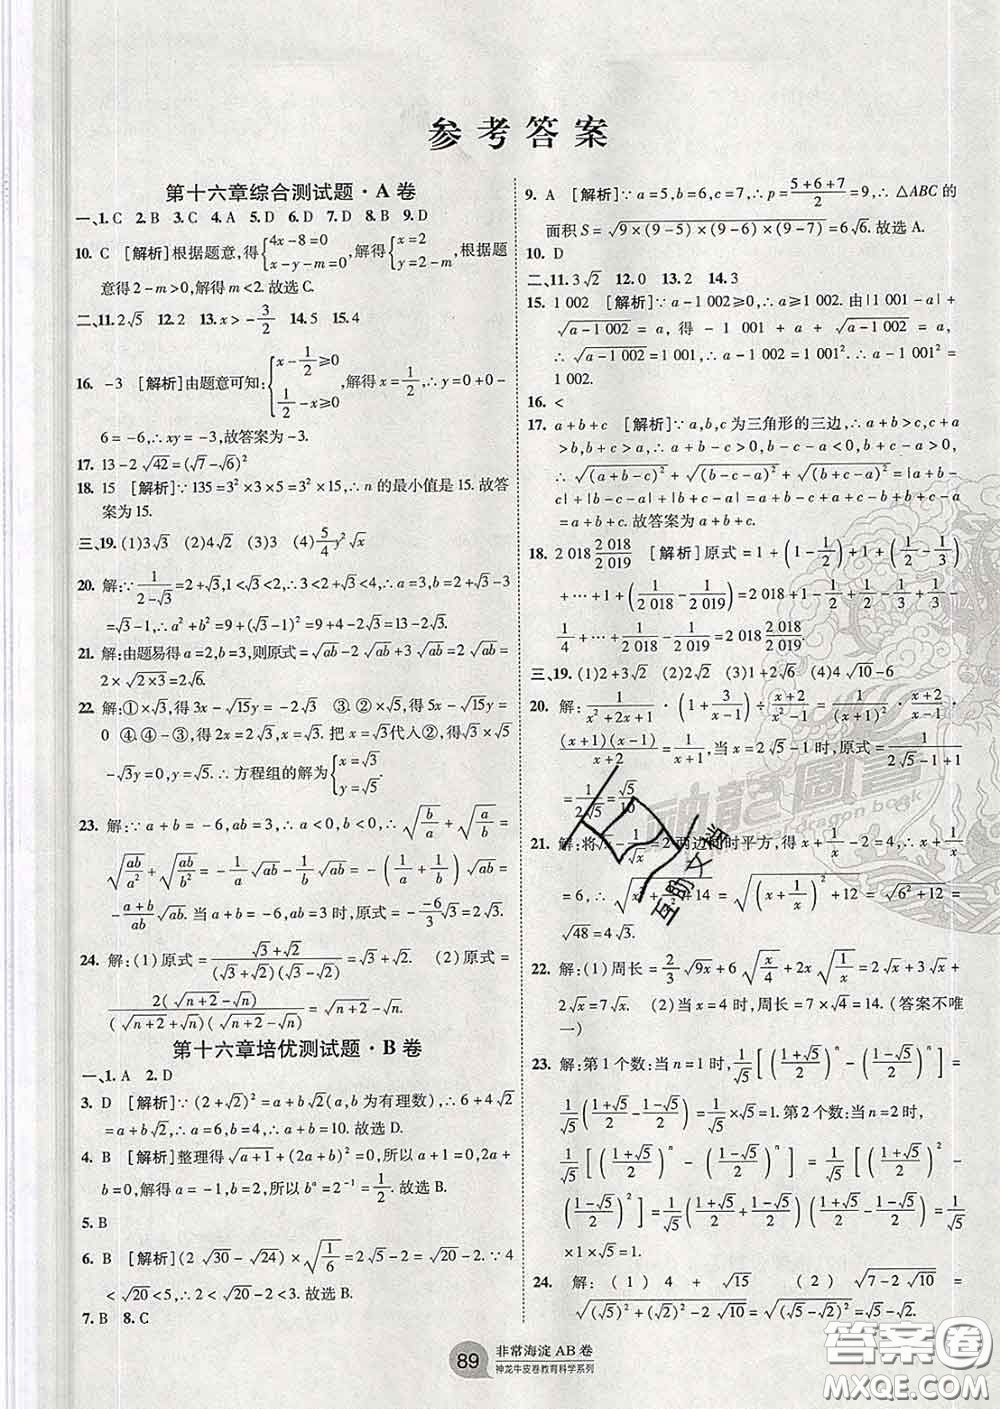 参考答案
第十六章综合测试题·A卷
一、1.C 2.B 3.C 4.A 5.D 6.D 7.D 8.B 9.D
10. C [解析]根据题意,得{4x-8=0 x-y-m=0,解得{x=2 y=2-m,根据题
意得2-m>0,解得m<2.故选C.
二、11.2√5 12.2 13.x>-3/2 14.5 15.4
16. -3 [解析]由题意可知:{x-1/2≥0 1/2-x≥0,解得x=1/2,∴y=0+0-
6=-6,∴xy=-3,故答案为-3.
17. 13-2√42=(√7-√6)²
18. 15 [解析]∵135=3²×3×5=3²×15,∴n的最小值是15.故答
案为15.
三、19. (1)3√3 (2)4√2 (3)0 (4)5/4 y²√x
20. 解:∵1/(2-√3)=2+√3,1<√3<2,∴3<2+√3<4,∴a=3,b=2+√3-3
=√3-1,∴a²+b²=9+(√3-1)²=9+4-2√3=13-2√3.
21. 解:由题易得a=2,b=3,则原式=√ab-2√ab+3√ab=2√ab=2
×√(2×3)=2√6.
22. 解:①×√3,得3x-√15y=-2√3 ③.②×√5,得5x-√15y=
0 ④.④-③,得2x=2√3,∴x=√3.把x=√3代入②,得√3×√5
-√3y=0,∴y=√5.∴方程组的解为{x=√3 y=√5
23. 解:∵a+b=-6,ab=3,∴a<0,b<0,∴√(b/a)+√(a/b)=
√(ab/a²)+√(ab/b²)=-√ab/a-√ab/b=-(1/a+1/b)√ab=
-(a+b)/ab √ab.当a+b=-6,ab=3时,原式=-(-6)/3 √3=2√3.
24. 解:(1)原式=(√3+√2)/((√3+√2)(√3-√2))=√3+√2. (2)原式=
2(√(n+2)-√n)/((√(n+2)+√n)(√(n+2)-√n))=√(n+2)-√n.
第十六章培优测试题·B卷
一、1.A 2.D
3. D [解析]∵(2+√2)²=a+b√2(a,b为有理数),∴6+4√2
=a+b√2,∴a=6,b=4,∴a+b=10.故选D.
4. B [解析]整理得√(a+1)+(2a+b)²=0,所以a+1=0,2a+
b=0,解得a=-1,b=2,所以bᵃ=2⁻¹=1/2.故选B.
5. B
6. B [解析](2√30-√24)×√(1/6)=2√5-2=√20-2.∵4
<√20<5,∴2<√20-2<3.故选B.
7. B 8. C
9. A [解析]∵a=5,b=6,c=7,∴p=(5+6+7)/2=9,∴△ABC的
面积S=√(9×(9-5)×(9-6)×(9-7))=6√6.故选A.
10. D
二、11.3√2 12.0 13.2 14.3
15. 1 002 [解析]∵a-1 002≥0,∴a≥1 002.由|1 001-a|+
√(a-1 002)=a,得-1 001+a+√(a-1 002)=a,
∴√(a-1 002)=1 001,∴a-1 002=1 001²,∴a-1 001²=
1 002.
16. <
17. a+b+c [解析]∵a,b,c为三角形的三边,∴a+b>c,c+a
>b,b+c>a,∴a+b-c>0,b-c-a<0,b+c-a>0,
∴√((a+b-c)²)+√((b-c-a)²)+√((b+c-a)²)=|a+b-
c|+|b-c-a|+|b+c-a|=a+b-c+a+c-b+b+c-a
=a+b+c.故答案为a+b+c.
18. 2 018 2 018/2 019 [解析]原式=1+(1-1/2)+1+(1/2-1/3)
+…+1+(1/2 018-1/2 019)=2 018+1-1/2+1/2-1/3+1/3-
1/4+…+1/2 018-1/2 019=2 018 2 018/2 019
三、19. (1)2+3√2 (2)2√2 (3)6-√5 (4)4√10-6
20. 解:1/(x²+2x+1)·(1+3/(x-1))÷(x+2)/(x²-1)=1/(x+1)²·(x+2)/(x-1)·
(x+1)(x-1)/(x+2)=1/(x+1),当x=2√5-1时,原式=1/(2√5-1+1)
=1/(2√5)=√5/10
21. 解:将√x-1/√x=2两边同时平方,得x+1/x-2=4,∴x+1/x
=6,∴√(x²+1/x²+14)=√((x+1/x)²+12)=√(6²+12)=
√48=4√3.
22. 解:(1)周长=2/3√9x+6√(x/4)+2x√(1/x)=2√x+3√x+
2√x=7√x. (2)当x=4时,周长=7×√4=14.(答案不唯
一)
23. 解:第1个数:当n=1时,1/√5[((1+√5)/2)ⁿ-((1-√5)/2)ⁿ]=
1/√5((1+√5)/2-(1-√5)/2)=1/√5×√5=1.第2个数:当n=2时,
1/√5[((1+√5)/2)ⁿ-((1-√5)/2)ⁿ]=1/√5[((1+√5)/2)²
-((1-√5)/2)²]=1/√5((1+√5)/2+(1-√5)/2)((1+√5)/2-(1-√5)/2)=1/√5
×1×√5=1.
24. 解:(1)4+√15 (2)√(7-2√10)
=√((√5)²+(√2)²-2√10)=√((√5-√2)²)=√5-√2.
89 非常海淀AB卷
神龙牛皮卷教育科学系列
答案圈
MXQE.COM